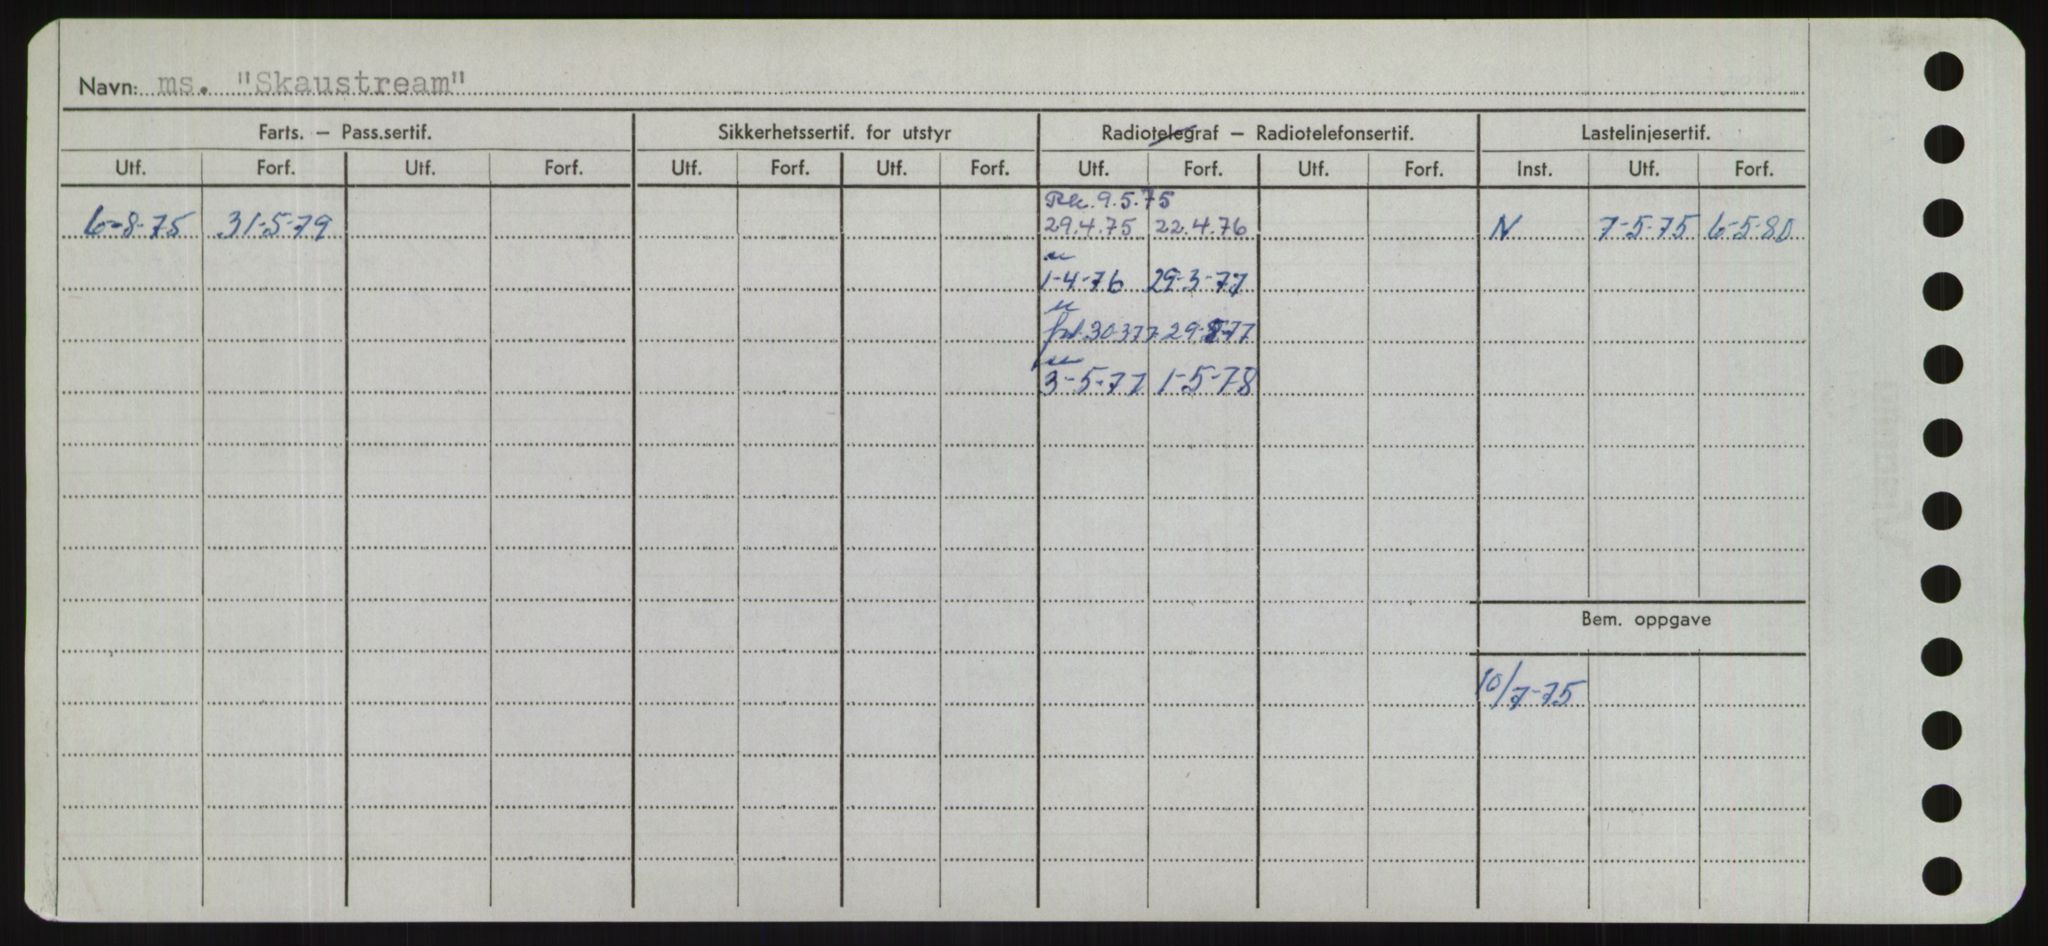 Navn: ms. "Skaustream"
Farts. – Pass.sertif. Sikkerhetssertif. for utstyr Radiotelegraf – Radiotelefonsertif. Lastelinjesertif.
Utf. Forf. Utf. Forf. Utf. Forf. Utf. Forf. Utf. Forf. Utf. Forf. Inst. Utf. Forf.
9.5.75
6-8-75 31-5-79 29.4.75 22.4.76 N 7-5-75 6-5-80
1-4-76 29-3-77
30.377
3-5-77 1-5-78
Bem. oppgave
10/7-75